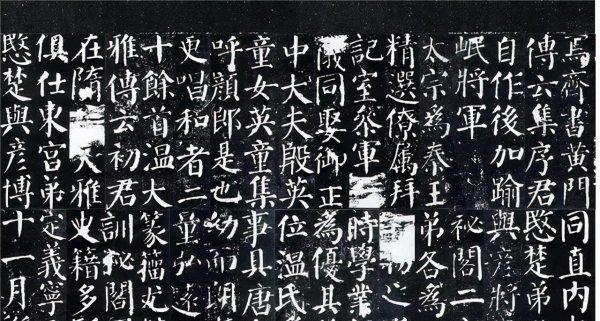 焉齊書黃門
傳云集序君
自作後加踰
岷將軍
太宗為秦王
精選僚屬拜
記室叅軍
儀同娶御正
中大夫殷英
童女英童集
呼顏郎是也
更唱和者二
十餘首溫大
雅傳云初君
在隋 大雅
俱仕東宮弟
愍楚與彥博
同直內
愍楚弟
與彥將
祕閣二
弟各為
之
時學業
為優其
位溫氏
事具唐
幼而朗
量弘遠
篆籀尤
訓祕閣
史籍多
定義寧
十一月